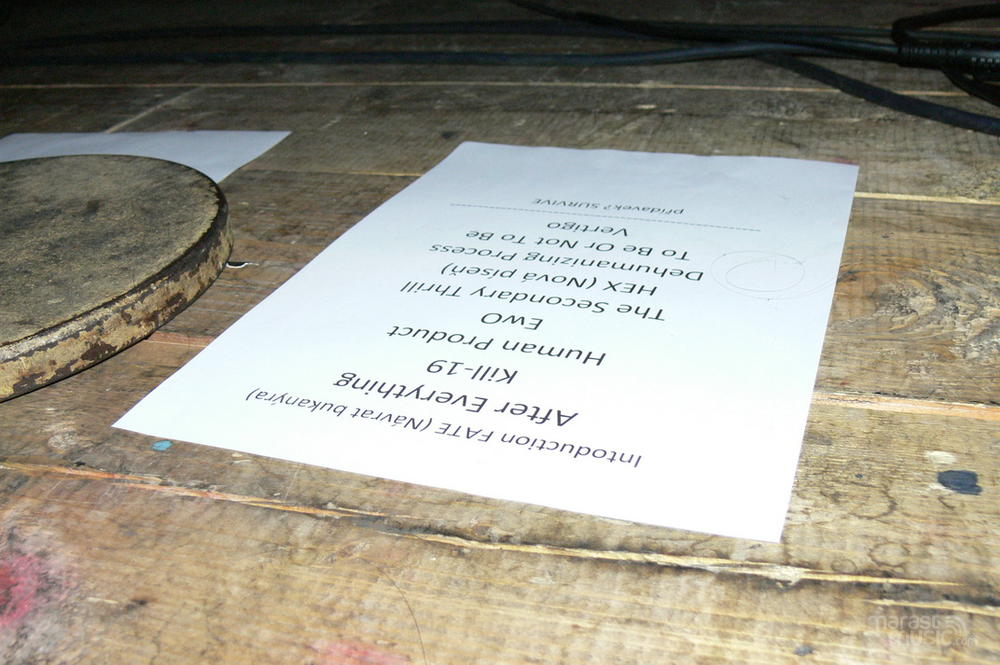 Intoduction FATE (Návrat bukanýra)
After Everything
Kill-19
Human Product
EwO
The Secondary Thrill
HEX (Nová píseň)
Dehumanizing Process
To Be Or Not To Be
Vertigo
přídavek? SURVIVE
marast
music.com